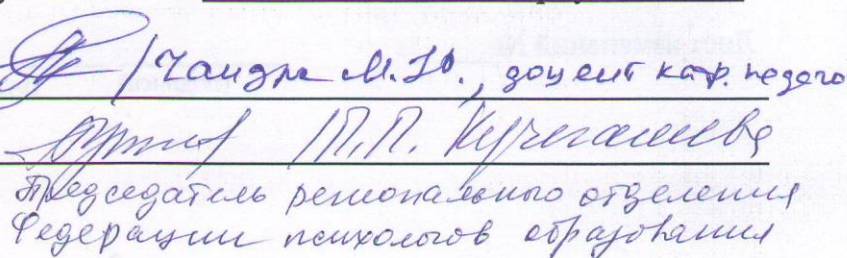 /Чандра М.Ю., доцент каф. педаго
П.П. Кучегашева
Председатель регионального отделения
Федерации психологов образования